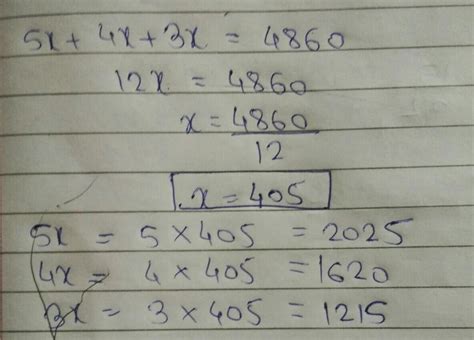 5x + 4x + 3x = 4860
12x = 4860
x = 4860
12
x = 405
5x = 5 × 405 = 2025
4x = 4 × 405 = 1620
3x = 3 × 405 = 1215